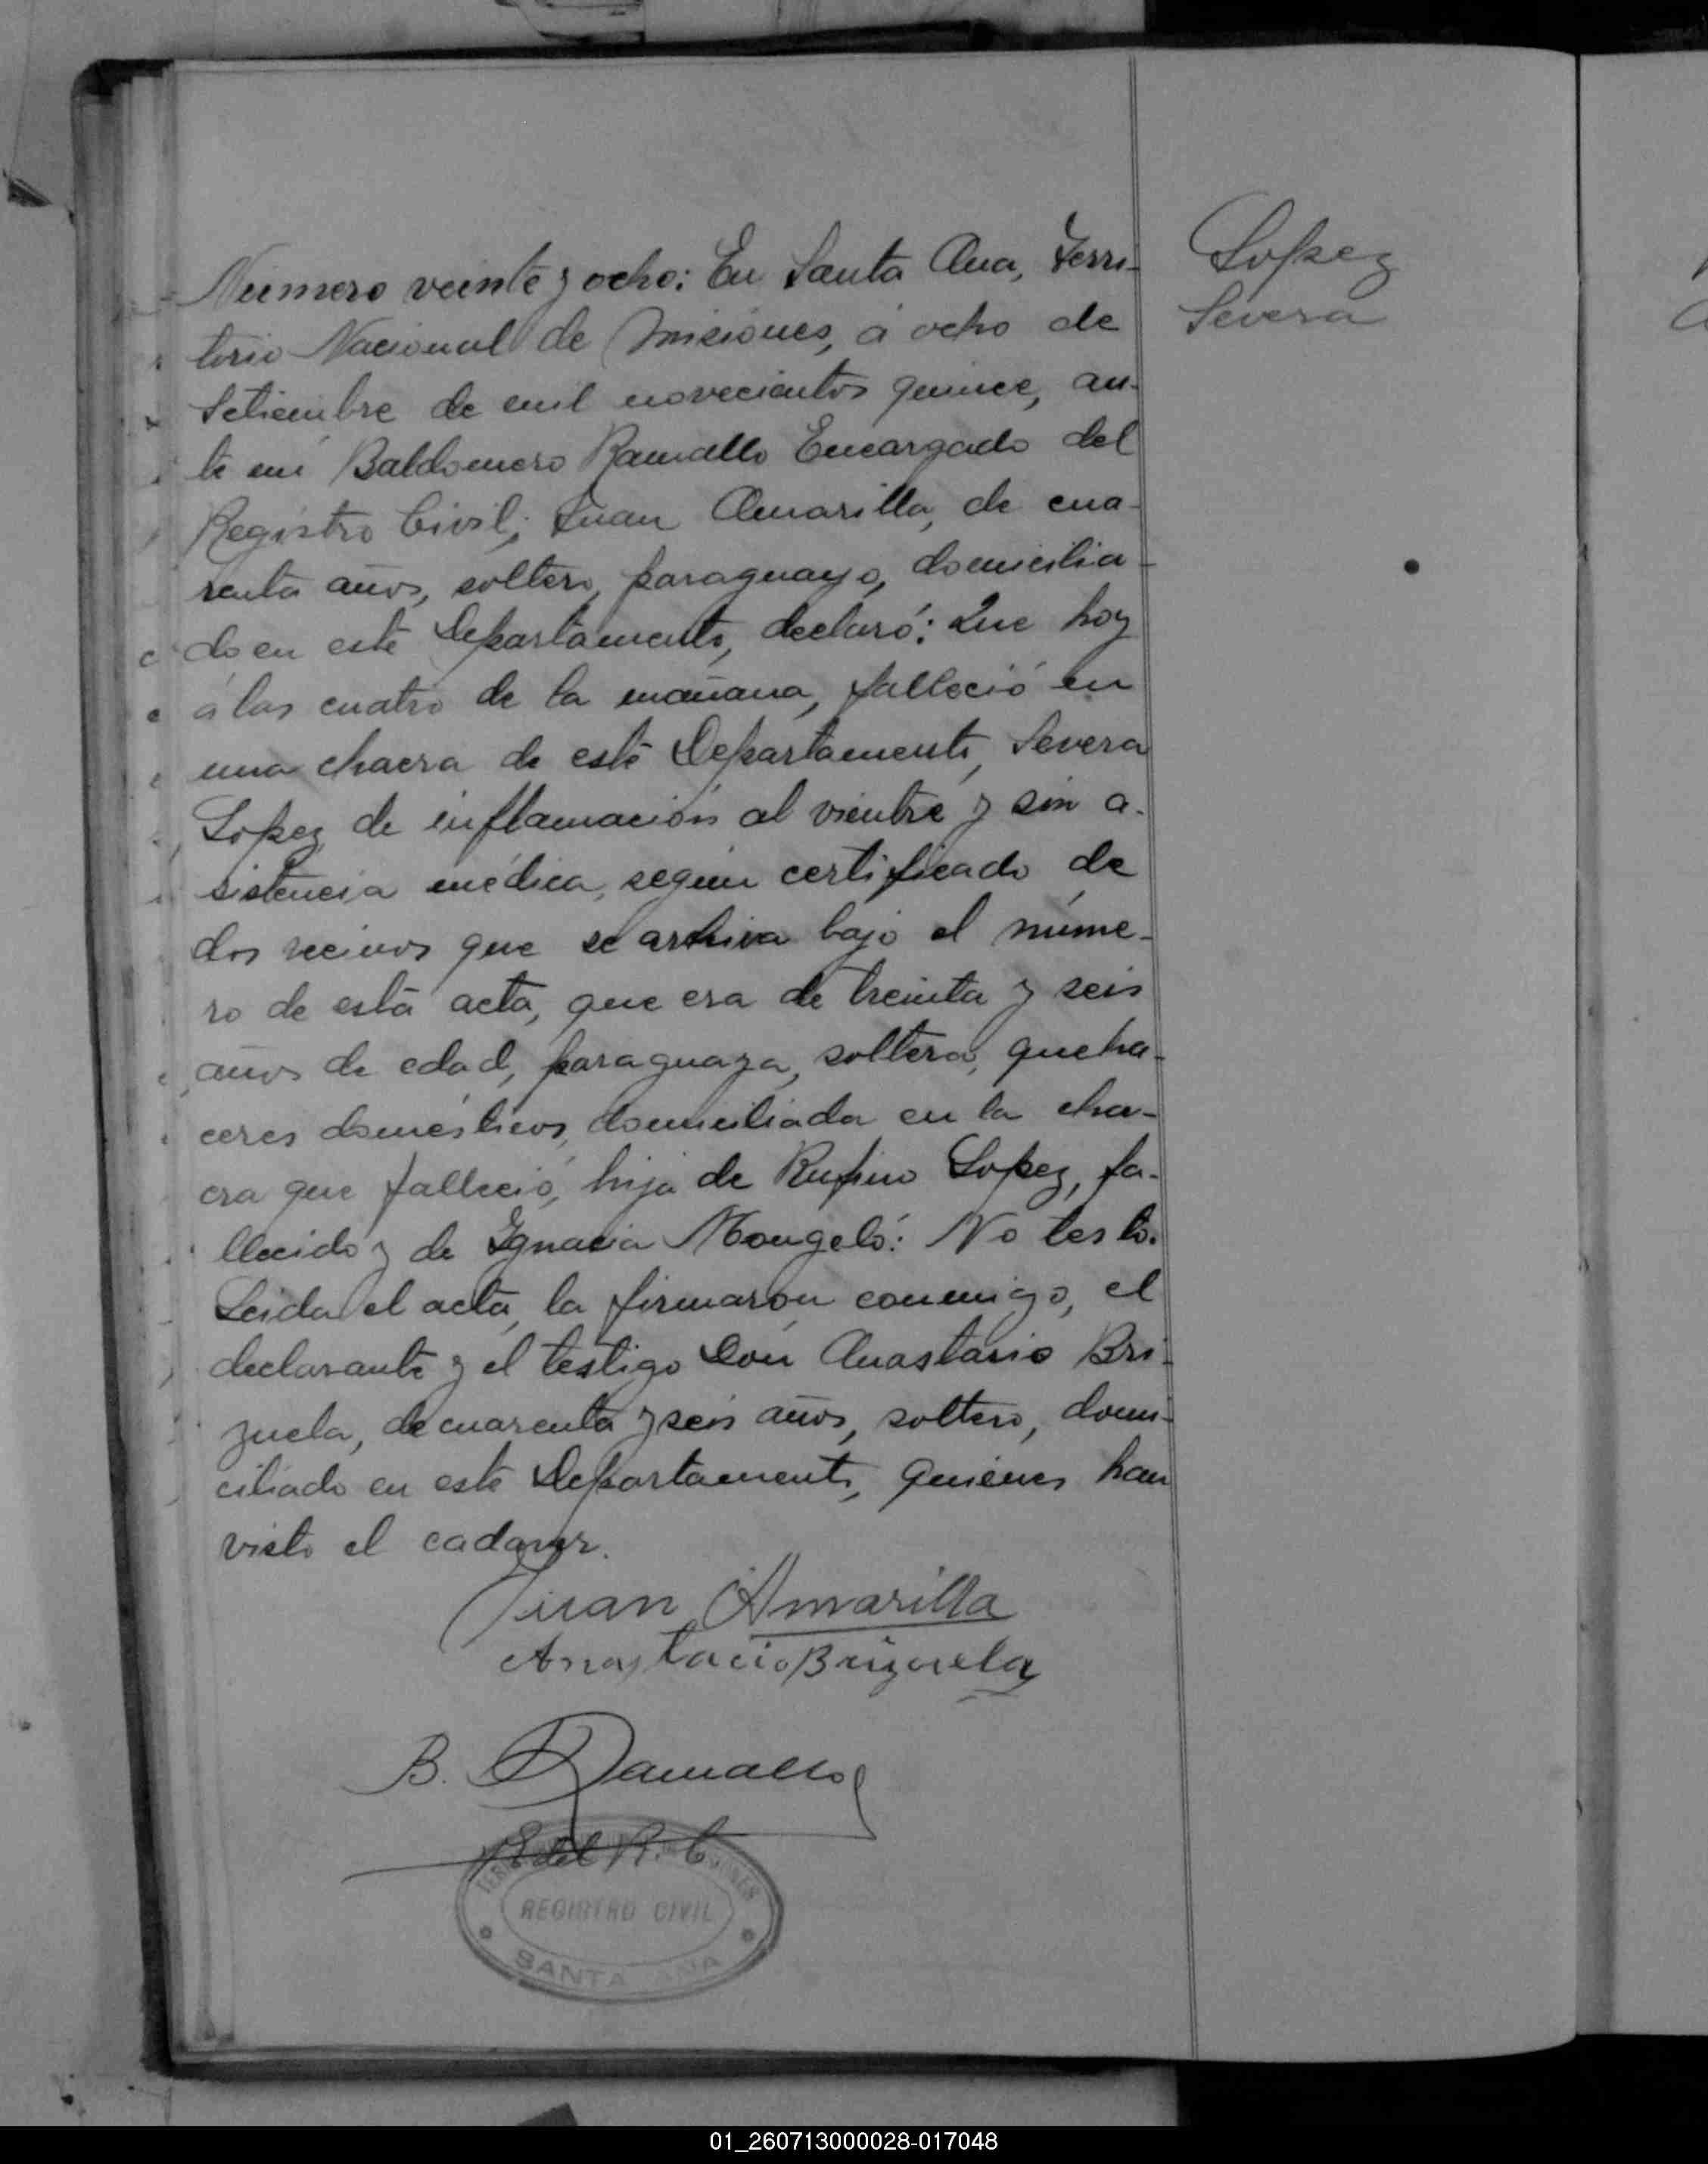 Lopez
Severa
Número veinte y ocho: En Santa Ana, Terri-
torio Nacional de Misiones, á ocho de
Setiembre de mil novecientos quince, an-
te mi Baldomero Ramallo Encargado del
Registro Civil; Juan Amarilla, de cua-
renta años, soltero, paraguayo, domicilia-
do en este Departamento, declaró: Que hoy
á las cuatro de la mañana, falleció en
una chacra de este Departamento, Severa
Lopez, de inflamación al vientre y sin a-
sistencia médica, según certificado de
dos vecinos que se archiva bajo el núme-
ro de esta acta, que era de treinta y seis
años de edad, paraguaya, soltera, queha-
ceres domésticos, domiciliada en la cha-
cra que falleció, hija de Rufino Lopez, fa-
llecido y de Ignacia Mongeló: No testó.
Leida el acta, la firmaron conmigo, el
declarante y el testigo Don Anastasio Bri-
zuela, de cuarenta y seis años, soltero, domi-
ciliado en este Departamento, quienes han
visto el cadaver.
Juan Amarilla
Anastacio Brizuela
B. Ramallo
E del R. C
REGISTRO CIVIL
SANTA ANA
01_260713000028-017048